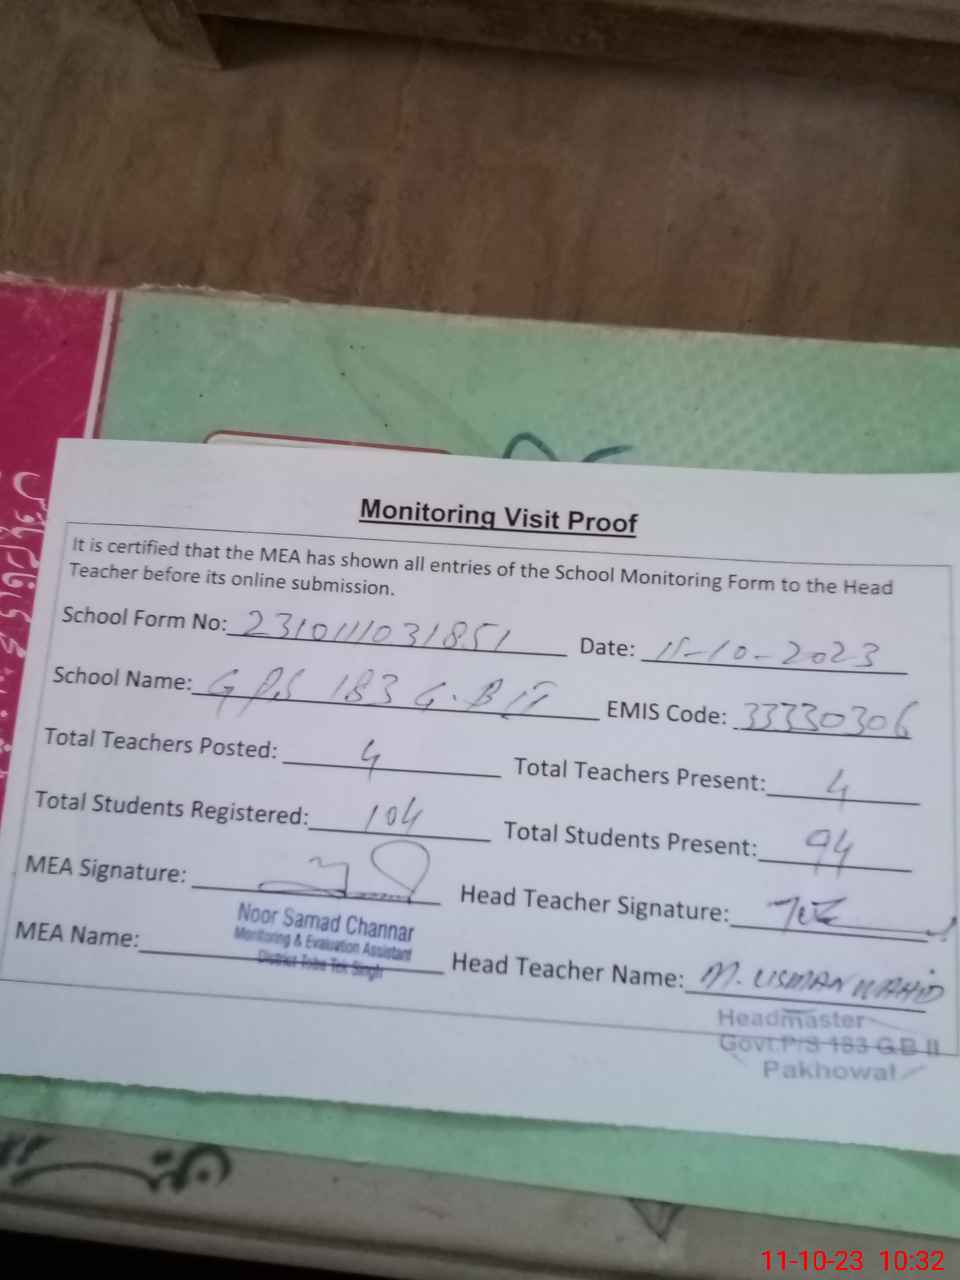 Monitoring Visit Proof
It is certified that the MEA has shown all entries of the School Monitoring Form to the Head
Teacher before its online submission.
School Form No: 231011031851 Date: 11-10-2023
School Name: GPS 183 G.B II EMIS Code: 33330306
Total Teachers Posted: 4 Total Teachers Present: 4
Total Students Registered: 104 Total Students Present: 94
MEA Signature: Head Teacher Signature:
Noor Samad Channar
Monitoring & Evaluation Assistant
District Toba Tek Singh
MEA Name: Head Teacher Name: M. USMAN WAHID
Headmaster
Govt.P/S 183 G.B II
Pakhowal
11-10-23 10:32